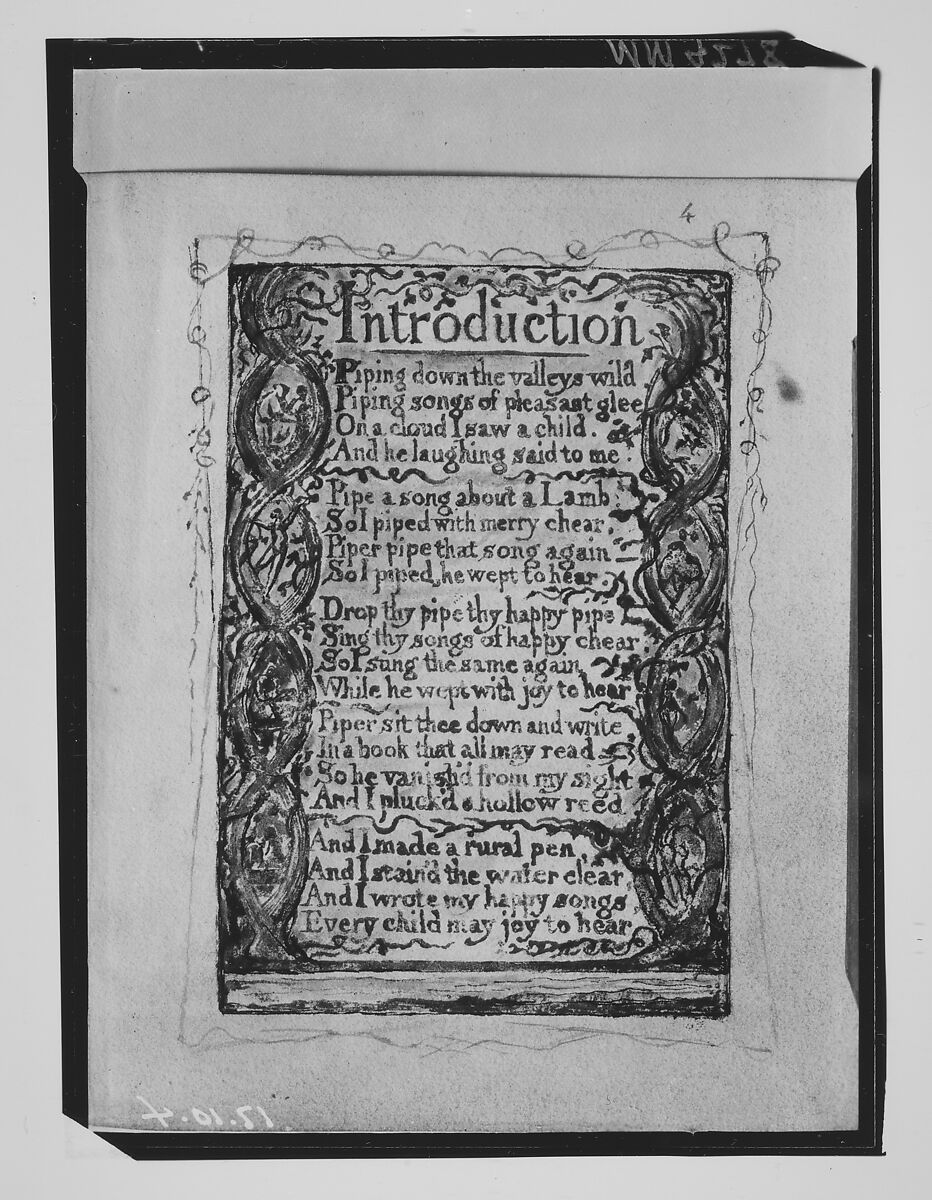 MM 4218
4
Introduction
Piping down the valleys wild
Piping songs of pleasant glee
On a cloud I saw a child.
And he laughing said to me.
Pipe a song about a Lamb;
So I piped with merry chear,
Piper pipe that song again—
So I piped, he wept to hear.
Drop thy pipe thy happy pipe
Sing thy songs of happy chear,
So I sung the same again
While he wept with joy to hear
Piper sit thee down and write
In a book that all may read—
So he vanish'd from my sight
And I pluck'd a hollow reed.
And I made a rural pen,
And I stain'd the water clear,
And I wrote my happy songs
Every child may joy to hear
17.10.4